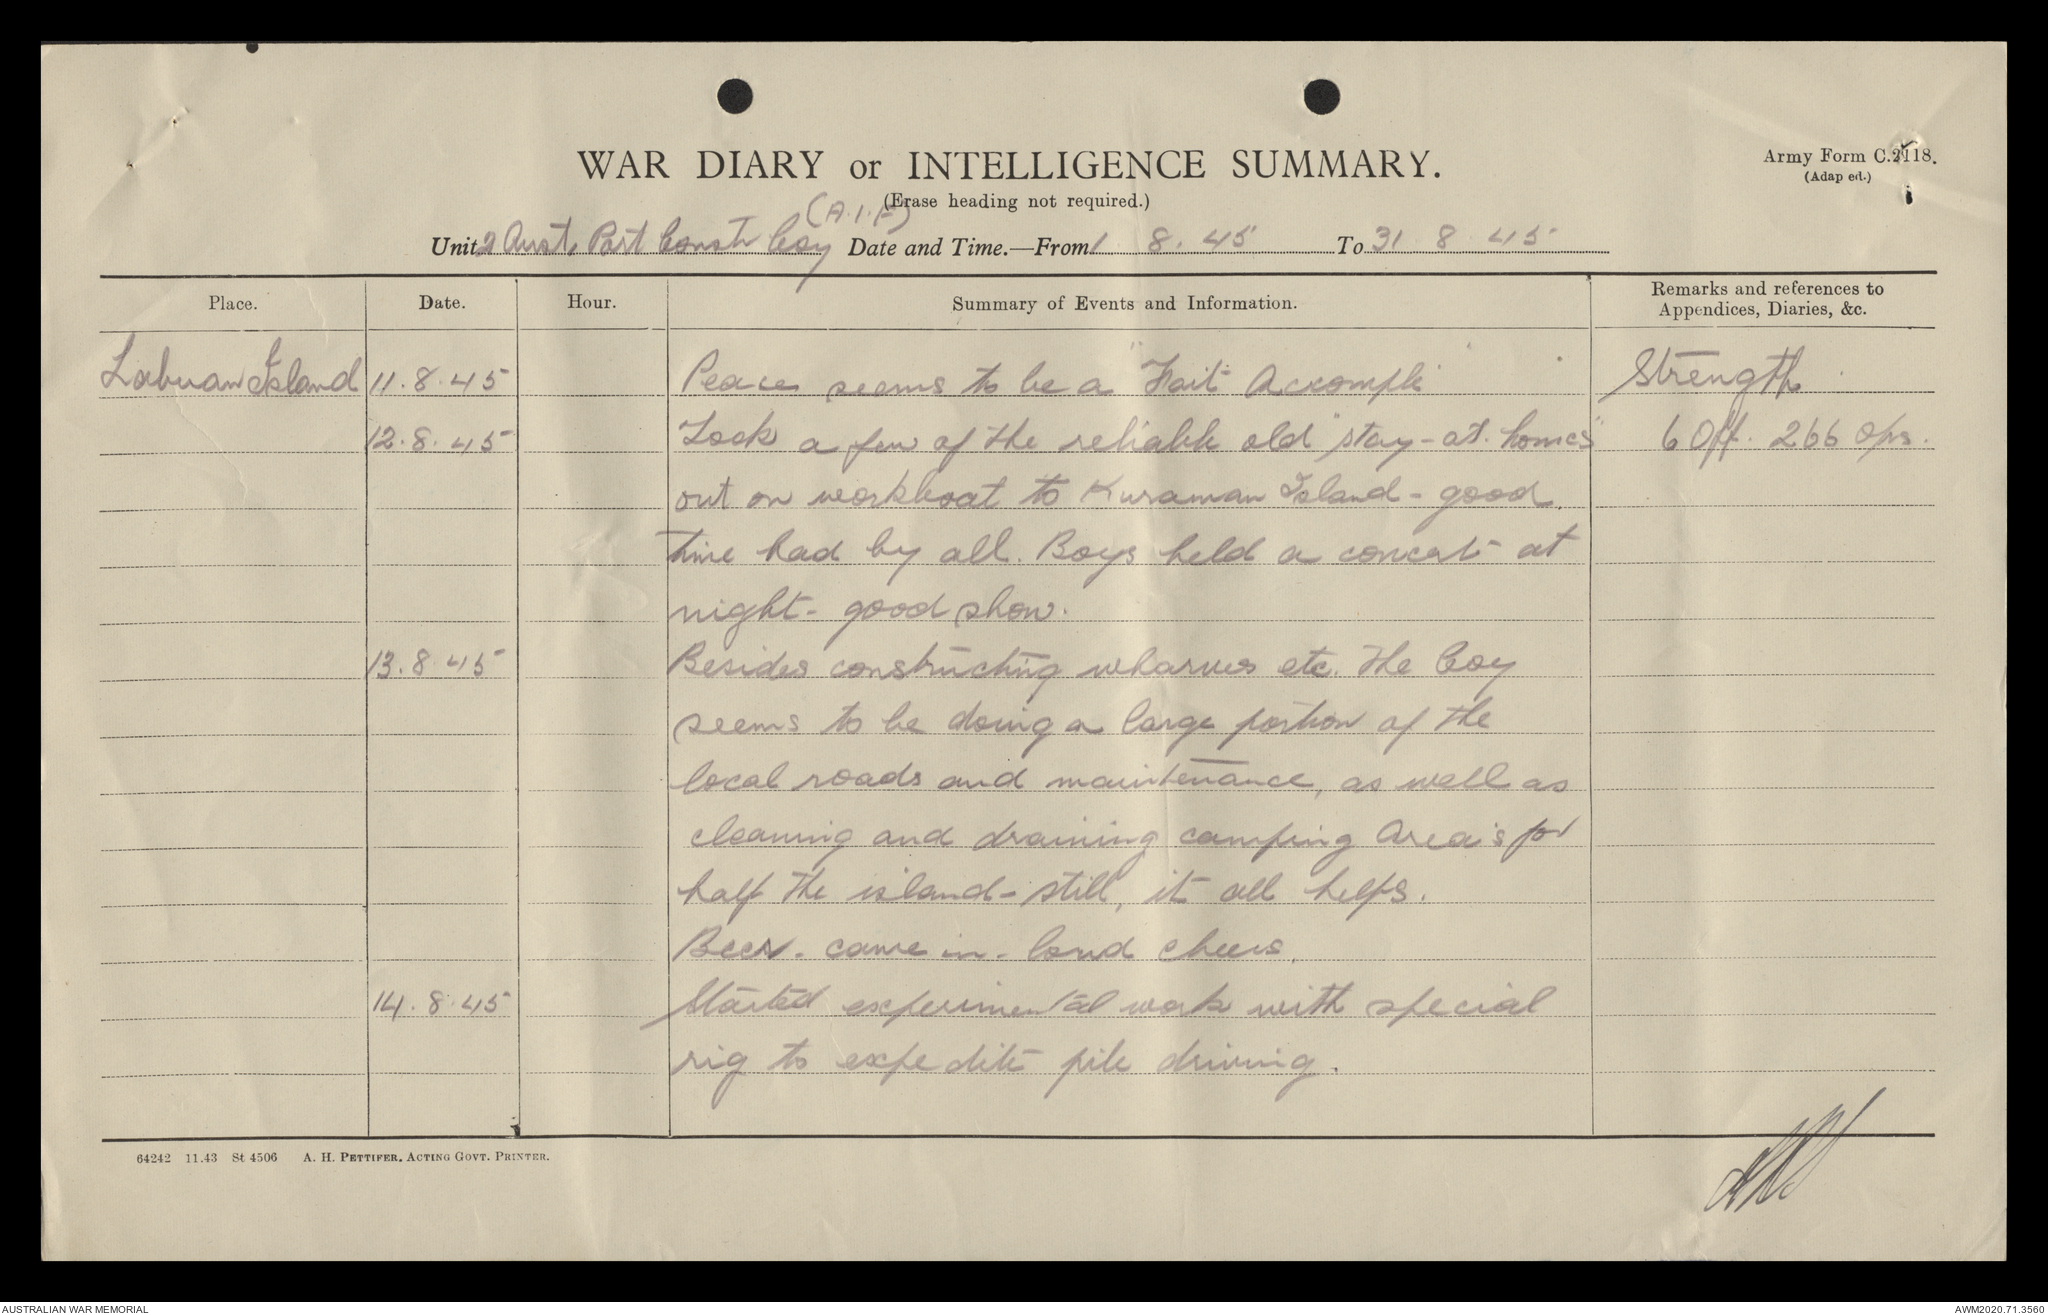 WAR DIARY or INTELLIGENCE SUMMARY.
Army Form C.2118.
(Adap ed.)
(Erase heading not required.)
(A.I.F)
Unit 2 Aust. Port Constr Coy Date and Time.—From 1 8. 45 To 31 8 45
Place. Date. Hour. Summary of Events and Information. Remarks and references to Appendices, Diaries, &c.
Labuan Island 11.8.45 Peace seems to be a "Fait Accompli" Strength
12.8.45 Took a few of the reliable old "stay-at-homes" 6 Off. 266 Ors.
out on workboat to Kuraman Island - good
time had by all. Boys held a concert at
night - good show.
13.8.45 Besides constructing wharves etc. the Coy
seems to be doing a large portion of the
local roads and maintenance, as well as
cleaning and draining camping area's for
half the island - still, it all helps.
Beer - came in - loud cheers.
14.8.45 Started experimental work with special
rig to expedite pile driving.
64242 11.43 St 4506 A. H. PETTIFER, ACTING GOVT. PRINTER.
AUSTRALIAN WAR MEMORIAL
AWM2020.71.3560